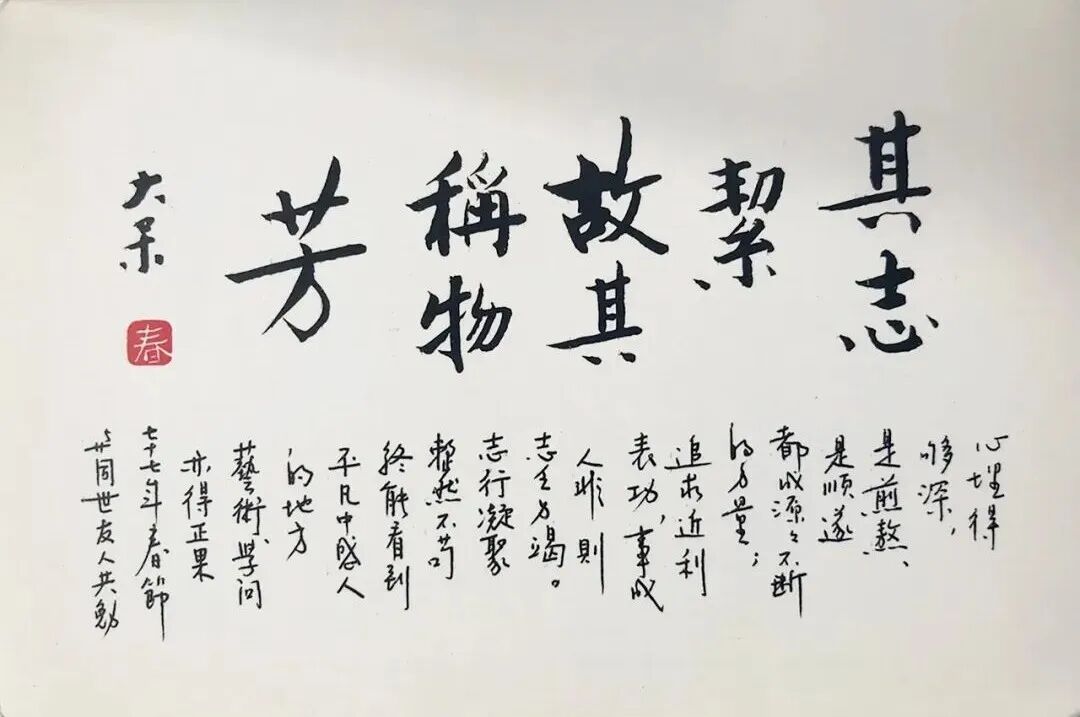 其志
絜
故其
稱物
芳
大呆
春
心埋得
够深，
是煎熬、
是順遂
都成源々不断
的力量；
追求近利
表功，事成
人 則
志乏力竭。
志行凝聚
然不苟
終能看到
平凡中感人
的地方
藝術、学问
亦得正果
七十七年春節
与 同世友人共勉